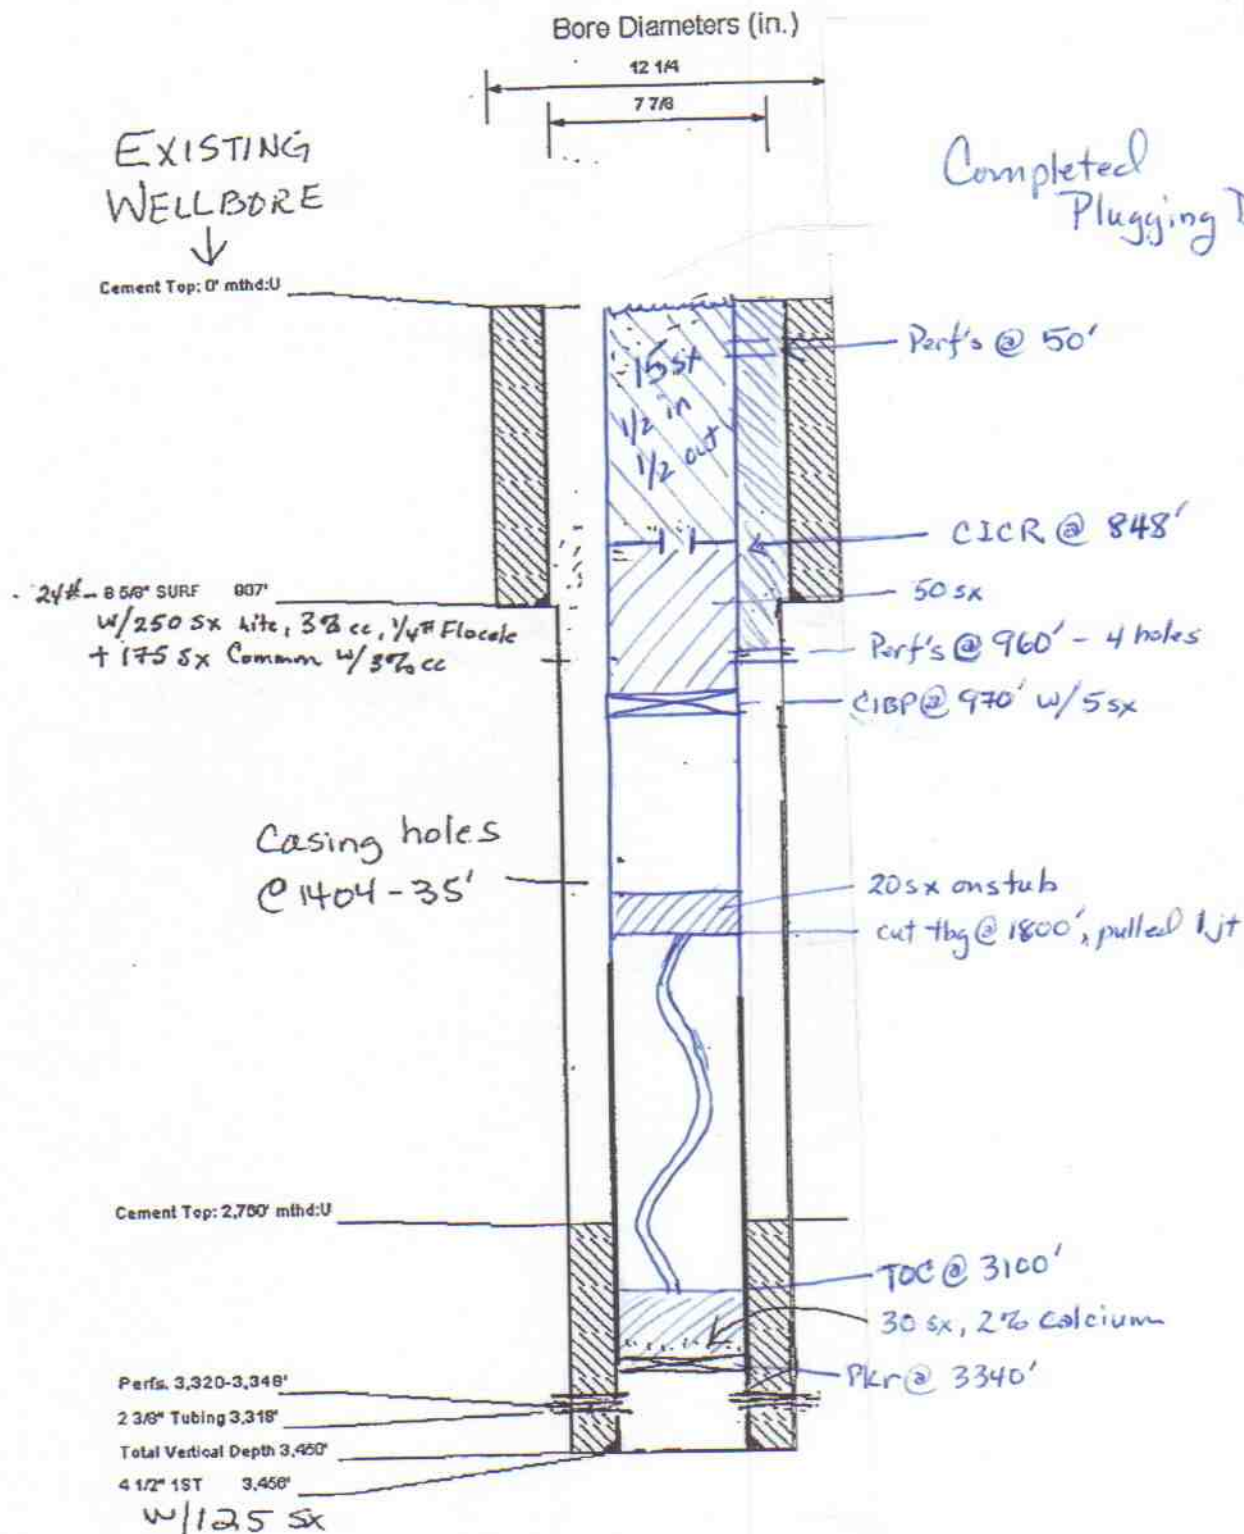 Bore Diameters (in.)
12 1/4
7 7/8
EXISTING
WELLBORE
Completed
Plugging
Cement Top: 0' mthd:U
Perf's @ 50'
15 sx
1/2 in
1/2 out
CICR @ 848'
24# - 8 5/8" SURF 907'
W/250 sx Lite, 3% cc, 1/4# Flocele
+ 175 sx Common w/3% cc
50 sx
Perf's @ 960' - 4 holes
CIBP @ 970' w/5 sx
Casing holes
@ 1404-35'
20 sx on stub
cut tbg @ 1800', pulled 1 jt
Cement Top: 2,760' mthd:U
TOC @ 3100'
30 sx, 2% Calcium
Pkr @ 3340'
Perfs. 3,320-3,348'
2 3/8" Tubing 3,318'
Total Vertical Depth 3,460'
4 1/2" 1ST 3,456'
W/125 sx